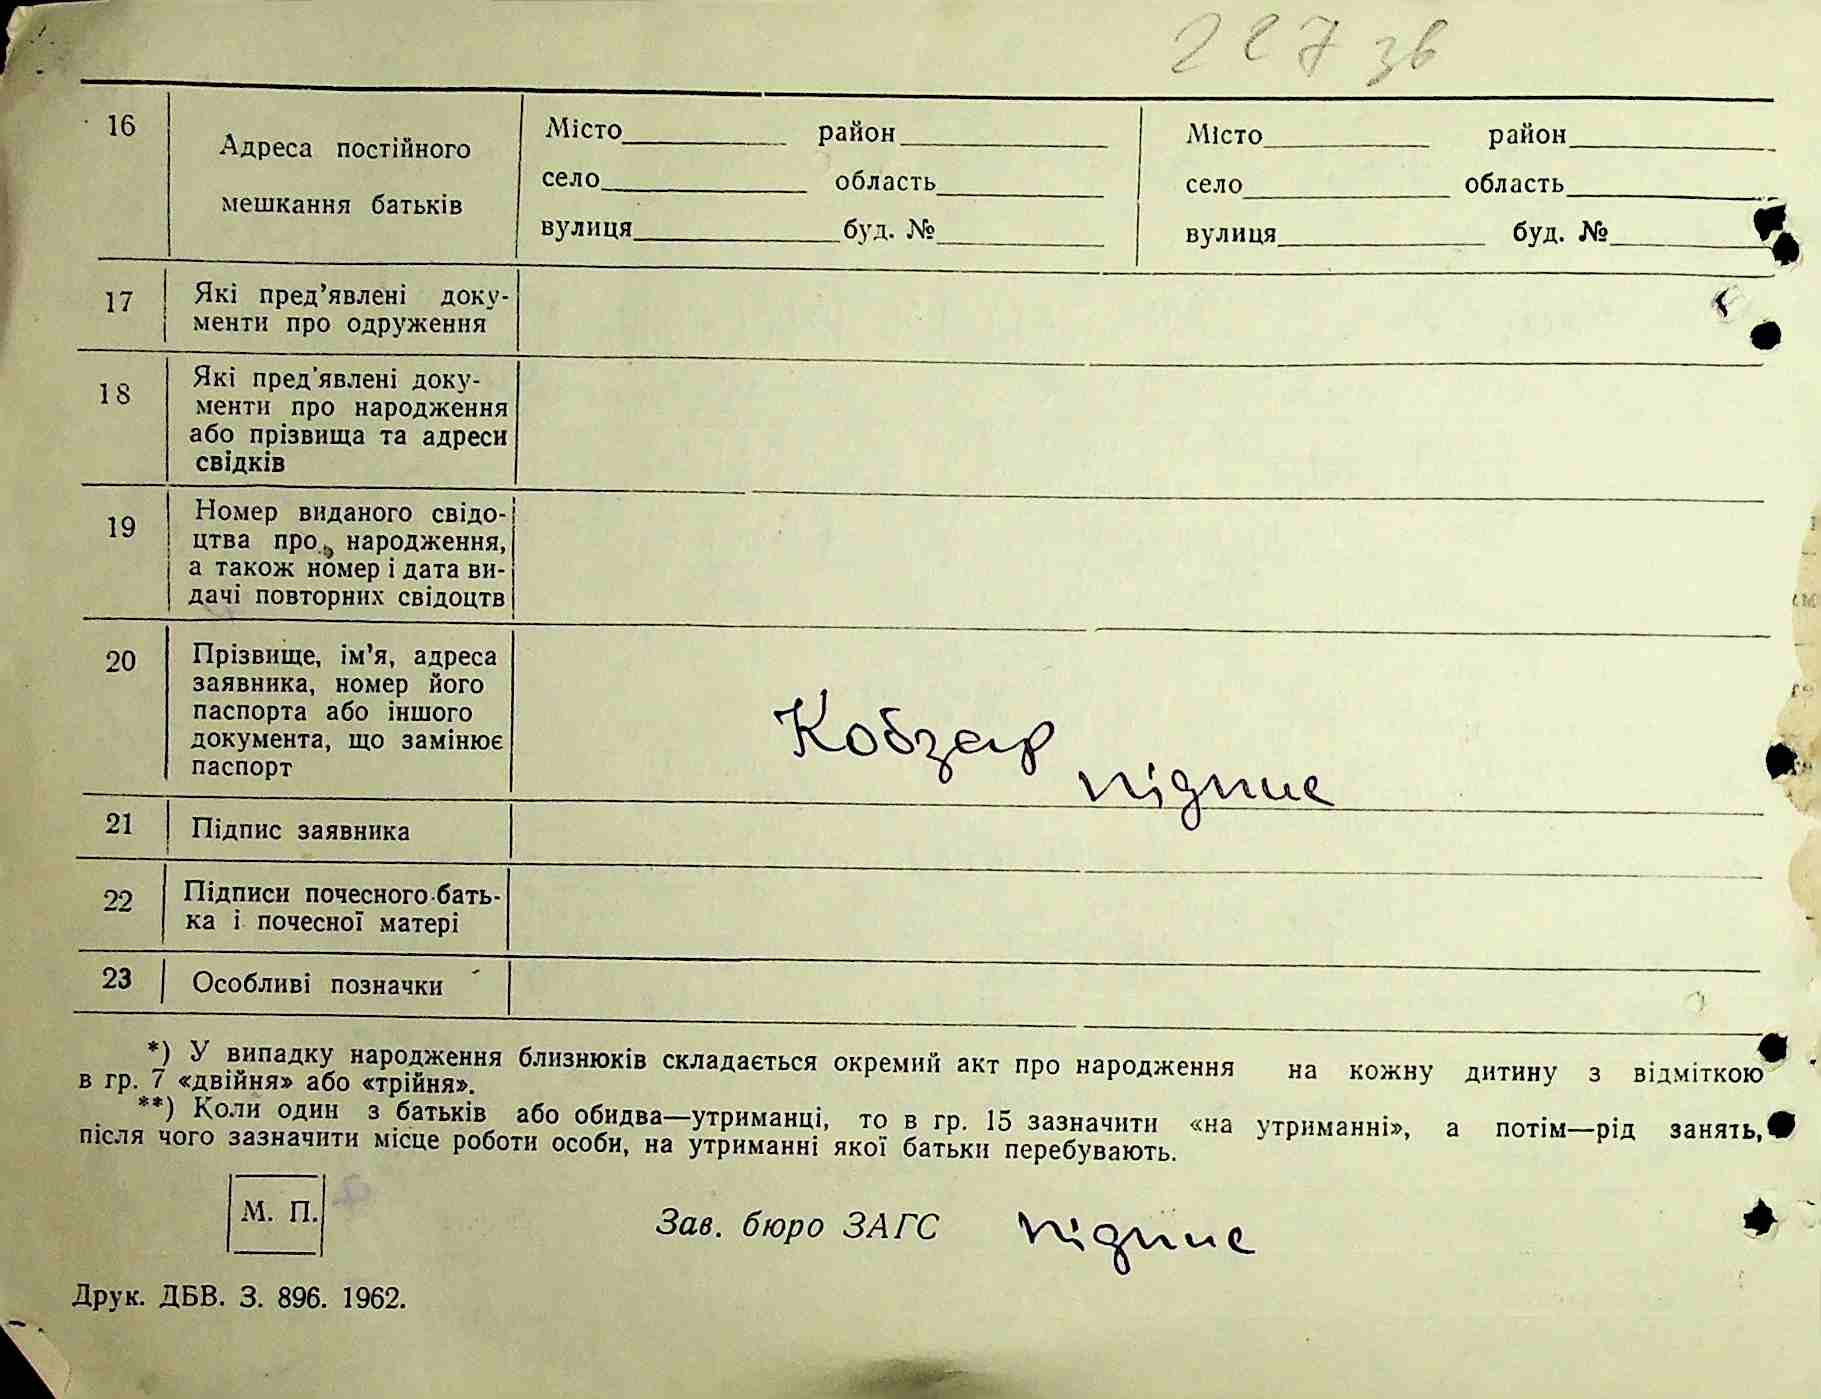 227 зв
16
Адреса постійного
мешкання батьків
Місто район
село область
вулиця буд. №
Місто район
село область
вулиця буд. №
17
Які пред’явлені доку-
менти про одруження
18
Які пред’явлені доку-
менти про народження
або прізвища та адреси
свідків
19
Номер виданого свідо-
цтва про народження,
а також номер і дата ви-
дачі повторних свідоцтв
20
Прізвище, ім’я, адреса
заявника, номер його
паспорта або іншого
документа, що замінює
паспорт
Кобзар
підпис
21
Підпис заявника
22
Підписи почесного бать-
ка і почесної матері
23
Особливі позначки
*) У випадку народження близнюків складається окремий акт про народження на кожну дитину з відміткою
в гр. 7 «двійня» або «трійня».
**) Коли один з батьків або обидва—утриманці, то в гр. 15 зазначити «на утриманні», а потім—рід занять,
після чого зазначити місце роботи особи, на утриманні якої батьки перебувають.
М. П.
Зав. бюро ЗАГС підпис
Друк. ДБВ. З. 896. 1962.